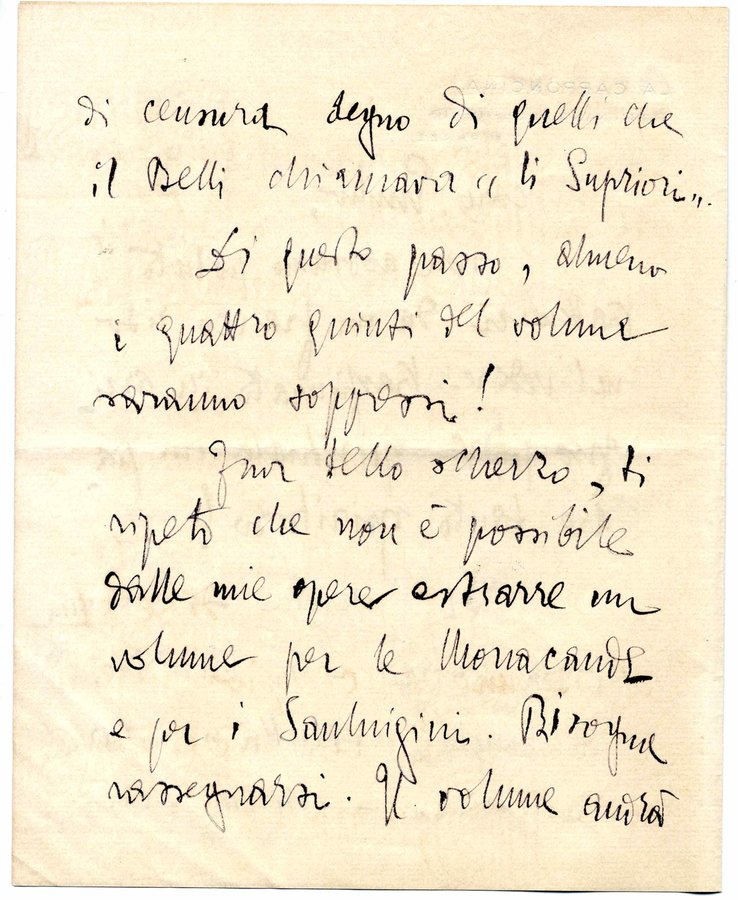 di censura degno di quelli che
il Belli chiamava „ li Supriori „.
Di questo passo, almeno
i quattro quinti del volume
saranno soppressi!
Fuor dello scherzo, ti
ripeto che non è possibile
dalle mie opere estrarre un
volume per le Monacande
e per i Sanluigini. Bisogna
rassegnarsi. Il volume andrà